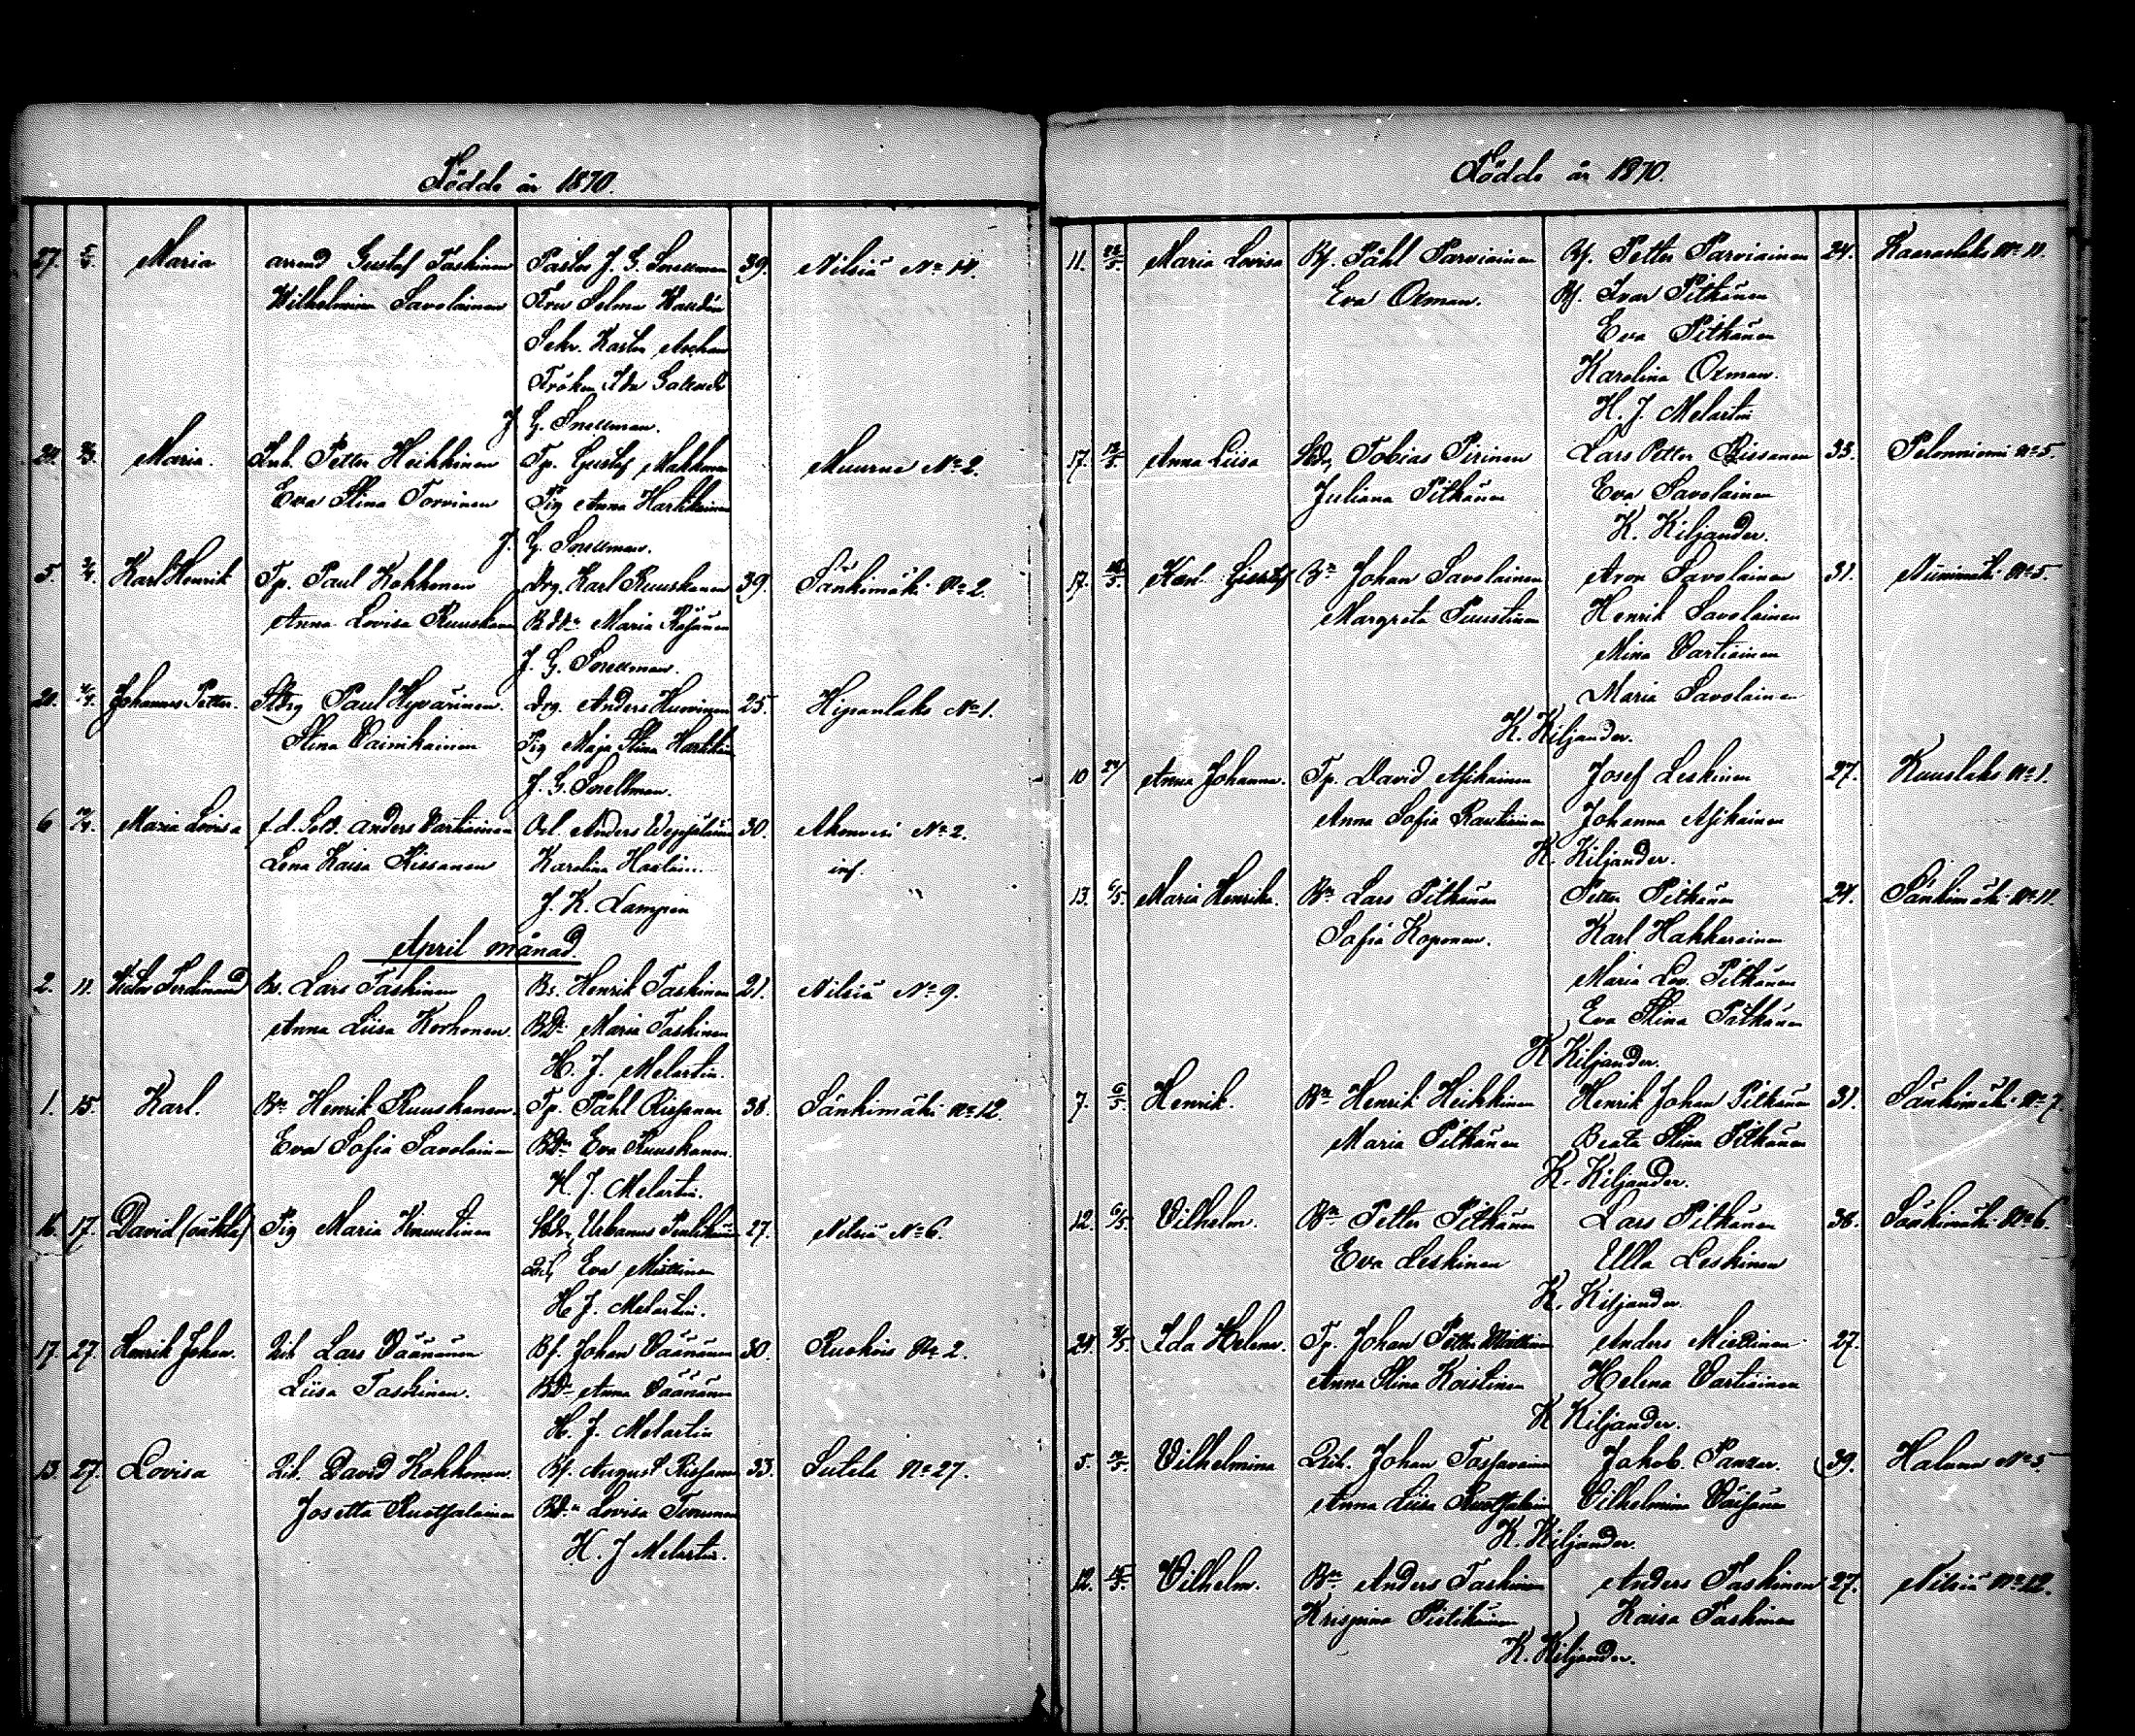 Födde år 1870.
27. 5/4. Maria arrend Gustaf Taskinen Pastor J. G. Snellman 39. Nilsiä No 14.
Wilhelmina Savolainen Fru Selma
Fröken Ida
J. G. Snellman.
Maria. Inh. Petter Heikkinen Tp. Gustaf Makkonen Muurua No 2.
Eva Stina Torvinen Pig Anna Hartikainen
J. G. Snellman.
5. Karl Henrik Tp. Paul Kokkonen Drg. Karl Ruuskanen 39. Sänkimäki No 2.
Anna Lovisa Ruuskanen Maria Räsänen
J. G. Snellman.
20. Johannes Petter. Paul Hyvärinen. Drg. Anders 25. Hipanlaks No 1.
Stina Vainikainen Pig Maja Stina
J. G. Snellman.
6 Maria Lovisa f.d. Sold. Anders Vartiainen Anders 30. Akonvesi No 2.
Lena Kaisa Rissanen Karolina inh.
J. K. Lampén
April månad.
2. 11. Victor Ferdinand Bs. Lars Taskinen Bs. Henrik Taskinen 21. Nilsiä No 9.
Anna Liisa Korhonen. Maria Taskinen
H. J. Melartin.
1. 15. Karl. Bn Henrik Ruuskanen. Tp. Påhl Rissanen 38. Sänkimäki No 12.
Eva Sofia Savolainen Eva Ruuskanen.
H. J. Melartin.
16. 17. David (oäkta) Pig Maria Knuutinen Urbanus 27. Nilsiä No 6.
Eva Miettinen
H. J. Melartin.
17. 27. Henrik Johan. Inh. Lars Väänänen Bf. Johan Väänänen 30. Ruokois No 2.
Liisa Taskinen. Anna Väänänen
H. J. Melartin
13. 27. Lovisa Inh. David Kokkonen. Bf. August Rissanen 33. Sutela No 27.
Josetta Ruotsalainen Lovisa
H. J. Melartin.
Födde år 1870.
11. Maria Lovisa Bf. Påhl Parviainen Bf. Petter Parviainen 24. Kaaraslaks No 11.
Eva Oxman. Bf. Ivar Pitkänen
Eva Pitkänen
Karolina Oxman.
H. J. Melartin
17. Anna Liisa Tobias Pirinen Lars Petter Rissanen 33. Pelonniemi No 5.
Juliana Pitkänen Eva Savolainen
K. Kiljander.
17. Karl Gustaf Bn Johan Savolainen Aron Savolainen 31. Niinimäki No 5.
Margreta Puustinen Henrik Savolainen
Mina Vartiainen
Maria Savolainen
K. Kiljander.
10 Anna Johanna. Tp. David Asikainen Josef Leskinen 27. Kuuslaks No 1.
Anna Sofia Rautiainen Johanna Asikainen
K. Kiljander.
13. 6/5. Maria Henrika. Bn Lars Pitkänen Petter Pitkänen 24. Sänkimäki No 11.
Sofia Koponen. Karl Hakkarainen
Maria Lov. Pitkänen
Eva Stina Pitkänen
K Kiljander.
7. 6/5. Henrik. Bn Henrik Heikkinen Henrik Johan Pitkänen 31. Sänkimäki No 7.
Maria Pitkänen Beata Stina Pitkänen
K. Kiljander.
12. 6/5. Vilhelm. Bn Petter Pitkänen Lars Pitkänen 38. Sänkimäki No 6.
Eva Leskinen Ulla Leskinen
K. Kiljander.
24. Ida Helena. Tp. Johan Petter Miettinen Anders Miettinen 27.
Anna Stina Koistinen Helena Vartiainen
K Kiljander.
5. Vilhelmina Inh. Johan Tossavainen Jakob Panzar. 39. Haluna No 3.
Anna Liisa Ruotsalainen Vilhelmina Väisänen
K. Kiljander.
12. Vilhelm. Bn Anders Taskinen Anders Taskinen 27. Nilsiä No 12.
Krispina Kaisa Taskinen
K. Kiljander.